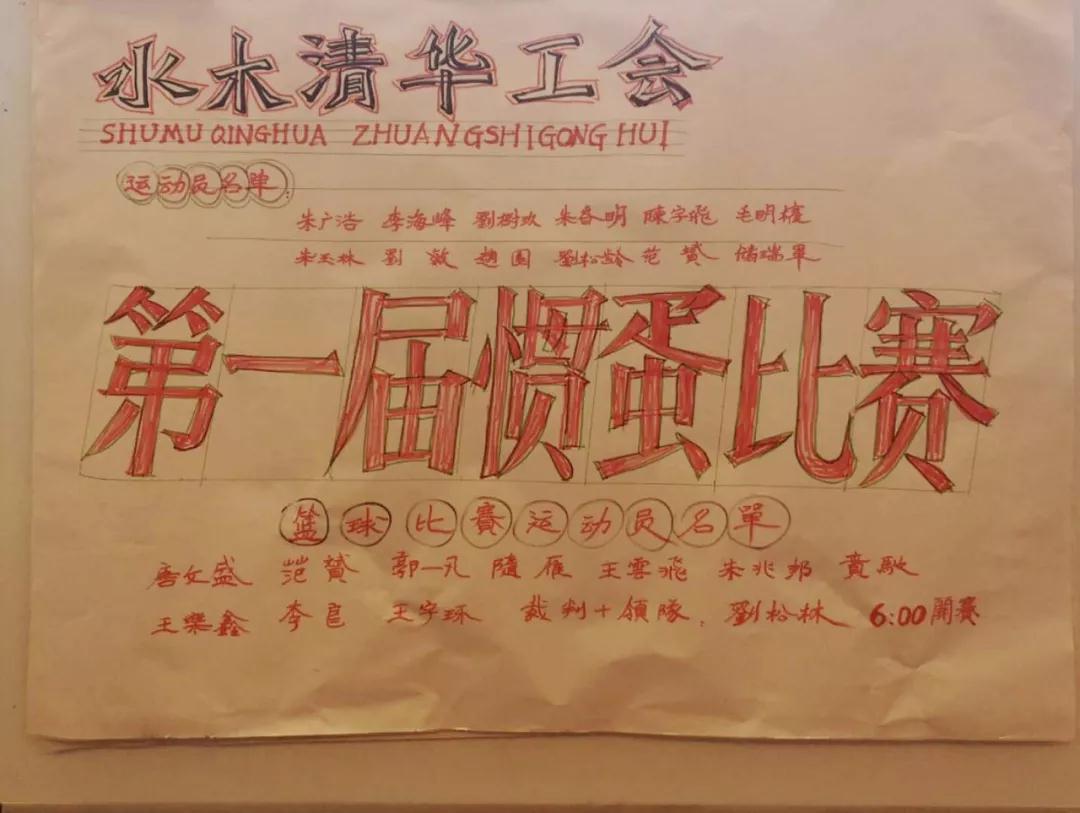 水木清华工会
SHUMU QINGHUA ZHUANGSHIGONG HUI
运动员名单:
朱广浩 李海峰 劉樹欢 朱春明 陳字飛 毛明
朱玉林 劉敦 趙圆 劉松龄 范贊 储瑞
第一届惯蛋比赛
篮球比賽运动员名單
唐文盛 范贊 郭一凡 隨雁 王雲飛 朱兆邦 黄
王樂鑫 李 王宇琢 裁判+領隊. 劉松林 6:00開賽